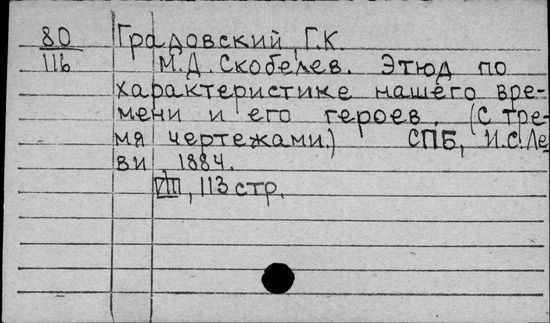 80 Градовский, Г.К.
116 М.Д. Скобелев. Этюд по
характеристике нашего вре-
мени и его героев. (С тре-
мя чертежами.) СПБ, И.С. Ле-
ви 1884.
VIII, 113 стр.